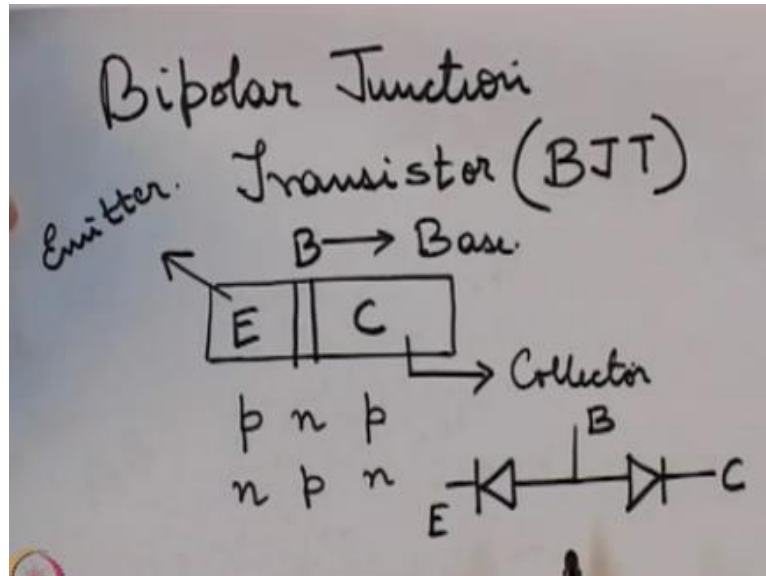 Bipolar Junction
Transistor (BJT)
Emitter.
B → Base.
E C
Collector
p n p
B
n p n
E C